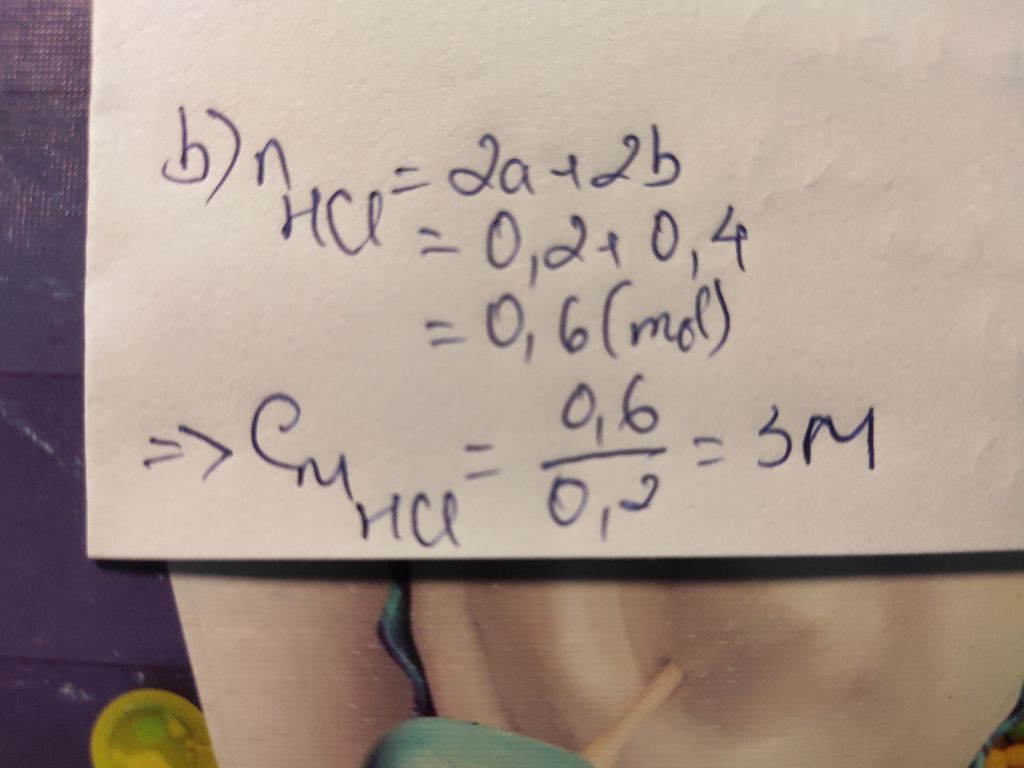 b) nHCl = 2a + 2b
= 0,2 + 0,4
= 0,6 (mol)
=> CM HCl = 0,6/0,2 = 3M